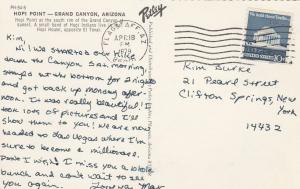 PH-54-S
HOPI POINT — GRAND CANYON, ARIZONA
Hopi Point at the south rim of the Grand Canyon
sunset. A small band of Hopi Indians live
Hopi House, opposite El Tovar.
Kim,
Hi! We started our hike
down the Canyon Sat. morning
stayed at the bottom for 2 nights
and got back up monday after-
noon. It was really beautiful! I
took lots of pictures and I'll
show them to you! We are now
headed to Las Vegas where I'm
sure to become a millionaire.
Don't worry! I miss you a whole
bunch and can't wait to see
you again.
FLAGSTAFF, AZ
APR 18
PM
10c
Kim Burke
21 Pearl Street
Clifton Springs, New
York
14432